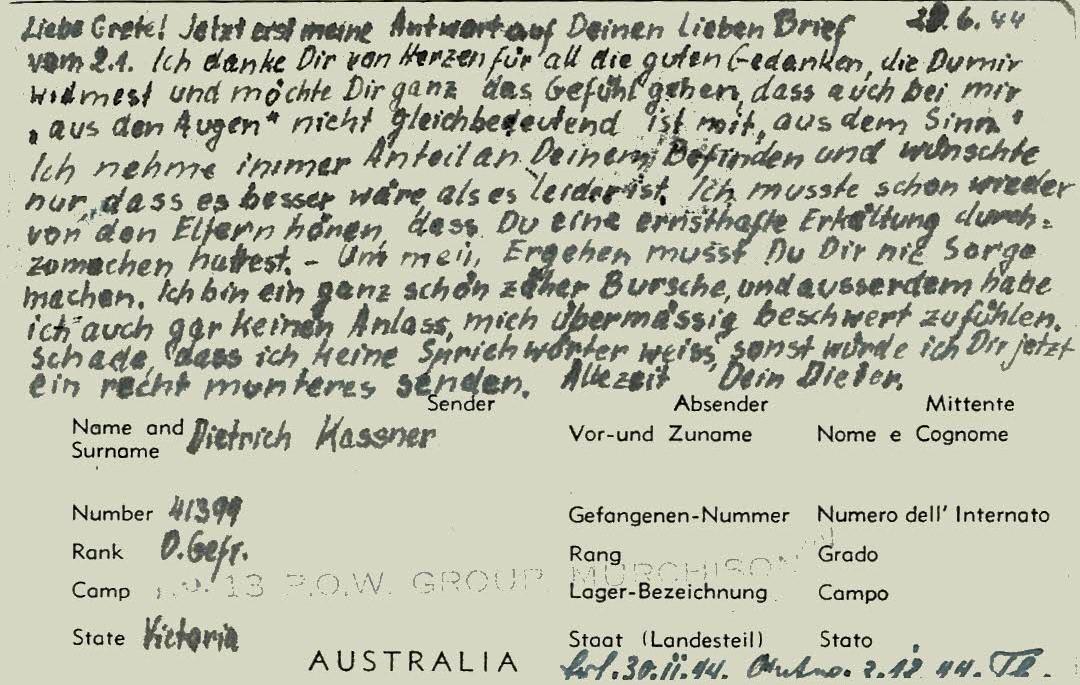 Liebe Grete! Jetzt erst meine Antwort auf Deinen lieben Brief 28.6.44
vom 2.1. Ich danke Dir von Herzen für all die guten Gedanken, die Du mir
widmest und möchte Dir ganz das Gefühl gehen, dass auch bei mir
„aus den Augen" nicht gleichbedeutend ist mit „aus dem Sinn"
Ich nehme immer Anteil an Deinem Befinden und wünschte
nur, dass es besser wäre, als es leider ist. Ich musste schon wieder
von den Eltern hören, dass Du eine ernsthafte Erkältung durch=
zumachen hattest. – Um mein Ergehen musst Du Dir nie Sorge
machen. Ich bin ein ganz schön zäher Bursche, und ausserdem habe
ich auch gar keinen Anlass, mich übermässig beschwert zu fühlen.
Schade, dass ich keine Sprichwörter weiss, sonst würde ich Dir jetzt
ein recht munteres senden. Allezeit Dein Dieter.
Sender Absender Mittente
Name and Surname Dietrich Kassner Vor-und Zuname Nome e Cognome
Number 41399 Gefangenen-Nummer Numero dell' Internato
Rank O.Gefr. Rang Grado
Camp 13 P.O.W. GROUP, MURCHISON Lager-Bezeichnung Campo
State Victoria Staat (Landesteil) Stato
AUSTRALIA Erl. 30.11.44. 2.12.44.